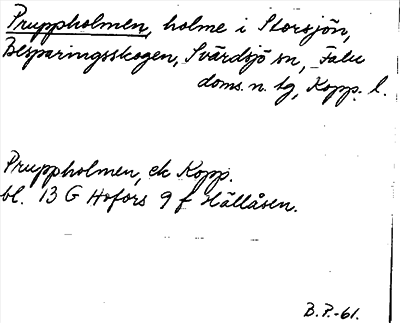 Pruppholmen, holme i Storsjön,
Besparingsskogen, Svärdsjö sn, Falu
doms. n. tg, Kopp. l.
Pruppholmen, ek Kopp.
bl. 13 G Hofors 9 f Hällåsen.
B.P.-61.